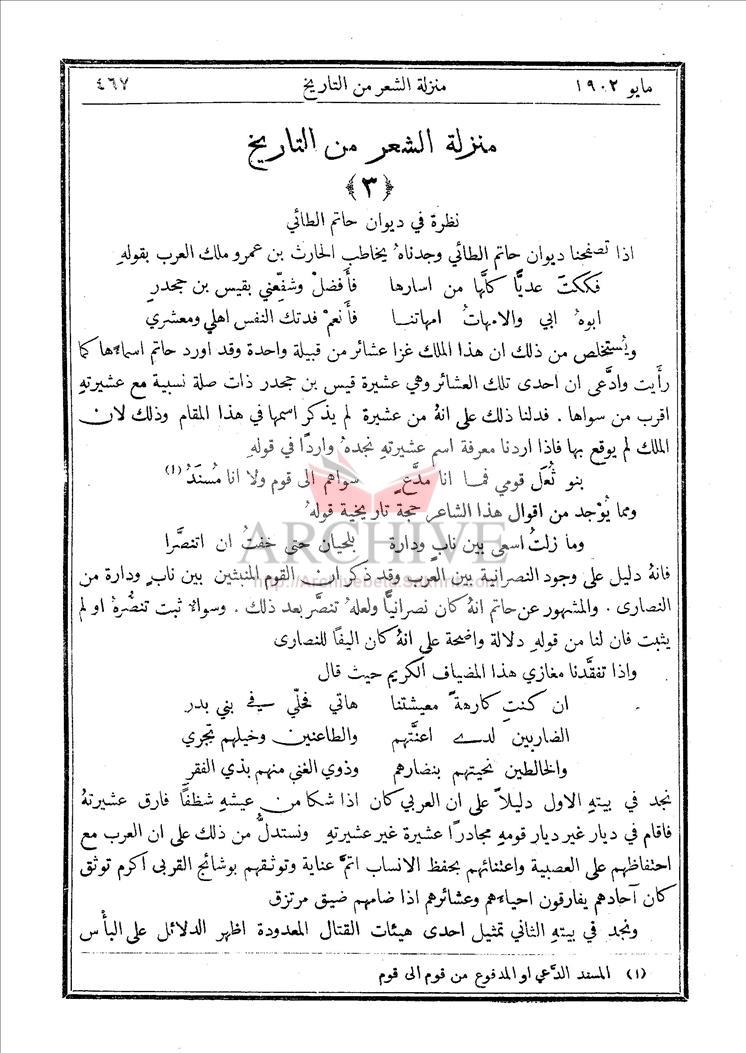 مايو ١٩٠٢ منزلة الشعر من التاريخ ٤٦٧
منزلة الشعر من التاريخ
﴿٣﴾
نظرة في ديوان حاتم الطائي
اذا تصفحنا ديوان حاتم الطائي وجدناهُ يخاطب الحارث بن عمرو ملك العرب بقولهِ
فككتَ عديًّا كلَّها من اسارها فأَفضلْ وشفِّعني بقيس بن جحدرِ
ابوهُ ابي والامهاتُ امهاتنا فأَنعمْ فدتك النفس اهلي ومعشري
ويُستخلص من ذلك ان هذا الملك غزا عشائر من قبيلة واحدة وقد اورد حاتم اسماءَها كما
رأَيت وادَّعى ان احدى تلك العشائر وهي عشيرة قيس بن جحدر ذات صلة نسبية مع عشيرتهِ
اقرب من سواها . فدلنا ذلك على انهُ من عشيرة لم يذكر اسمها في هذا المقام وذلك لان
الملك لم يوقع بها فاذا اردنا معرفة اسم عشيرتهِ نجدهُ واردًا في قولهِ
بنو ثُعَل قومي فما انا مدَّعٍ سواهم الى قوم ولا انا مُسنَدُ (١)
ومما يُوْجد من اقوال هذا الشاعر حجة تاريخية قولهُ
وما زلتُ اسعى بين نابٍ ودارة بلحيان حتى خفتُ ان اتنصَّرا
فانهُ دليل على وجود النصرانية بين العرب وقد ذكر ان القوم المنبثين بين نابٍ ودارة من
النصارى . والمشهور عن حاتم انهُ كان نصرانيًّا ولعلهُ تنصَّر بعد ذلك . وسواءٌ ثبت تنصُّرهُ او لم
يثبت فان لنا من قولهِ دلالة واضحة على انهُ كان اليفًا للنصارى
واذا تفقَّدنا مغازي هذا المضياف الكريم حيث قال
ان كنتِ كارهةً معيشتنا هاتي فحلّي في بني بدر
الضاربين لدى اعنَّتهم والطاعنين وخيلهم تجري
والخالطين نحيتهم بنضارهم وذوي الغنى منهم بذي الفقر
نجد في بيتهِ الاول دليلاً على ان العربي كان اذا شكا من عيشهِ شظفًا فارق عشيرتهُ
فاقام في ديار غير ديار قومهِ مجادرًا عشيرة غير عشيرتهِ ونستدلُّ من ذلك على ان العرب مع
احتفاظهم على العصبية واعتنائهم بحفظ الانساب اتمَّ عناية وتوثقهم بوشائج القربى اكرم توثق
كان آحادهم يفارقون احياءَهم وعشائرهم اذا ضامهم ضيق مرتزق
ونجد في بيتهِ الثاني تمثيل احدى هيئات القتال المعدودة اظهر الدلائل على البأْس
(١) المسند الدَّعي او المدفوع من قوم الى قوم
ARCHIVE